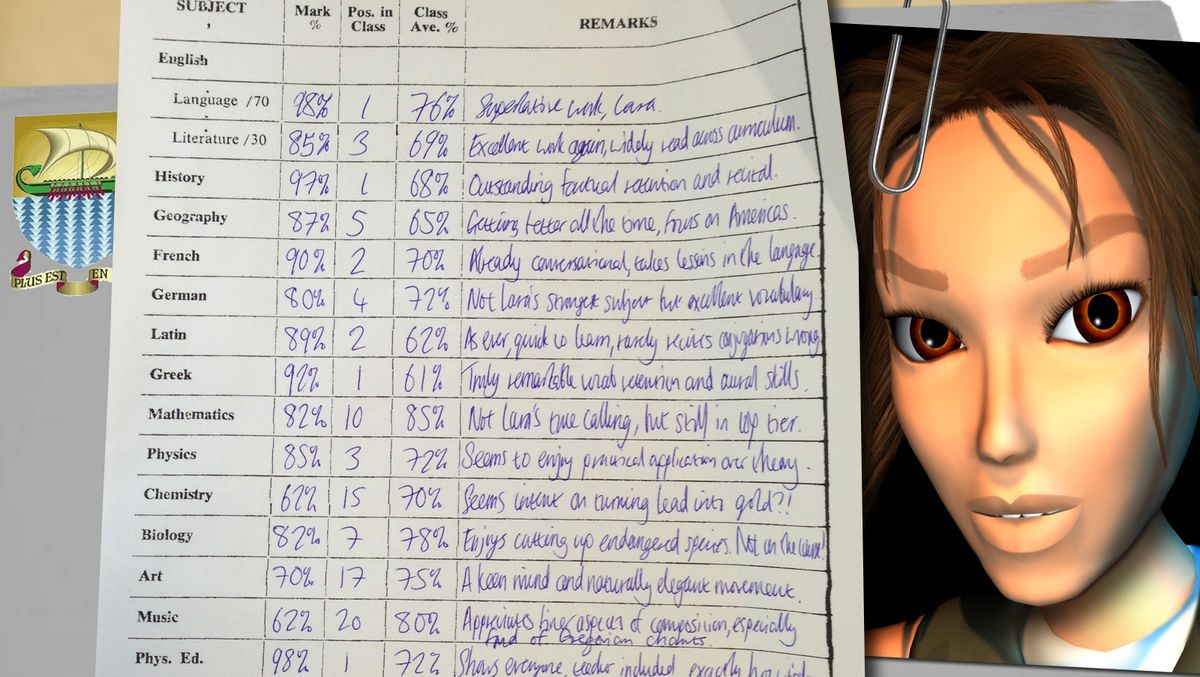 SUBJECT Mark % Pos. in Class Class Ave. % REMARKS
English
Language /70 98% 1 76% Superlative work, Lara.
Literature /30 85% 3 69% Excellent work again, widely read across curriculum.
History 97% 1 68% Outstanding factual retention and recital.
Geography 87% 5 65% Getting better all the time, focus on Americas.
French 90% 2 70% Already conversational, takes lessons in the language.
German 80% 4 72% Not Lara's strongest subject but excellent vocabulary
Latin 89% 2 62% As ever, quick to learn, rarely recites conjugations wrong.
Greek 92% 1 61% Truly remarkable vocab retention and aural skills.
Mathematics 82% 10 85% Not Lara's true calling, but still in top tier.
Physics 85% 3 72% Seems to enjoy practical application over theory.
Chemistry 62% 15 70% Seems intent on turning lead into gold?!
Biology 82% 7 78% Enjoys cutting up endangered species. Not on the
Art 70% 17 75% A keen mind and naturally elegant movement.
Music 62% 20 80% Appreciates finer aspects of composition, especially
fond of Gregorian chants.
Phys. Ed. 98% 1 72% Shows everyone, teacher included, exactly how
PLUS EST EN